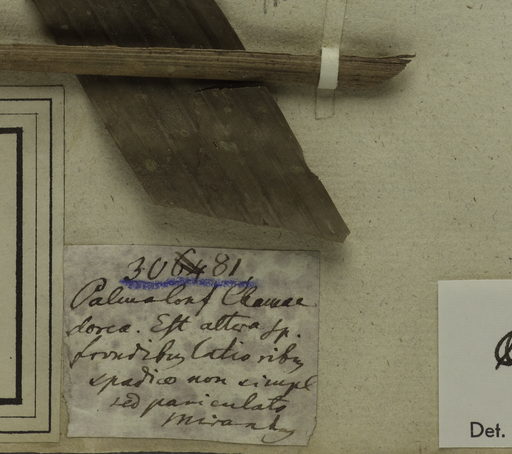 306481
Palma conf Chamae
dorea. Est altera sp.
frondibus latioribus
spadice non simpl
sed paniculato
Det.